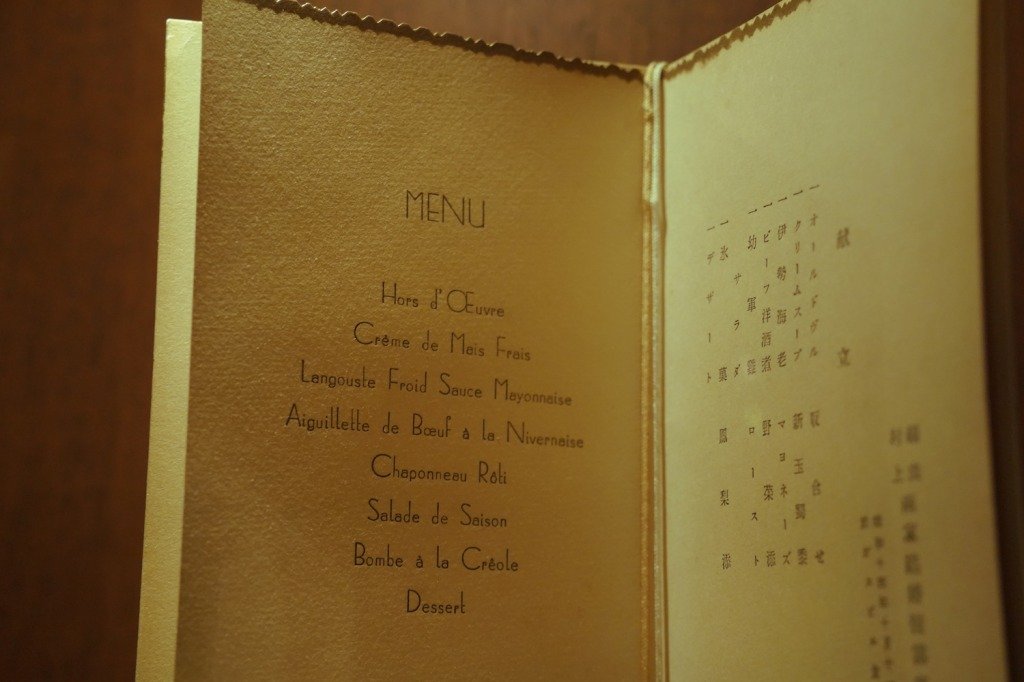 MENU
Hors d'Œuvre
Crême de Mais Frais
Langouste Froid Sauce Mayonnaise
Aiguillette de Bœuf à la Nivernaise
Chaponneau Rôti
Salade de Saison
Bombe à la Créole
Dessert
献立
一オールドヴル 取合せ
一クリームスープ 新玉蜀黍
一伊勢海老 マヨネーズ
一ビーフ洋酒煮 野菜添
一幼軍鶏 ロースト
一サラダ
一氷菓 鳳梨添
一デザート
村上